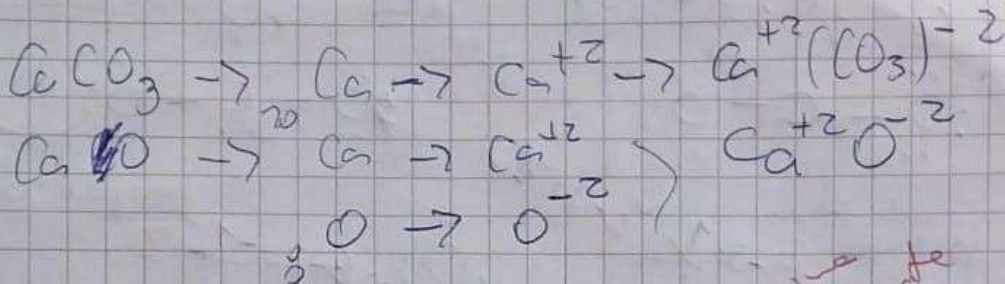 CaCO₃ → Ca → Ca⁺² → Ca⁺²(CO₃)⁻²
CaO → ₂₀Ca → Ca⁺² Ca⁺²O⁻²
₈O → O⁻²